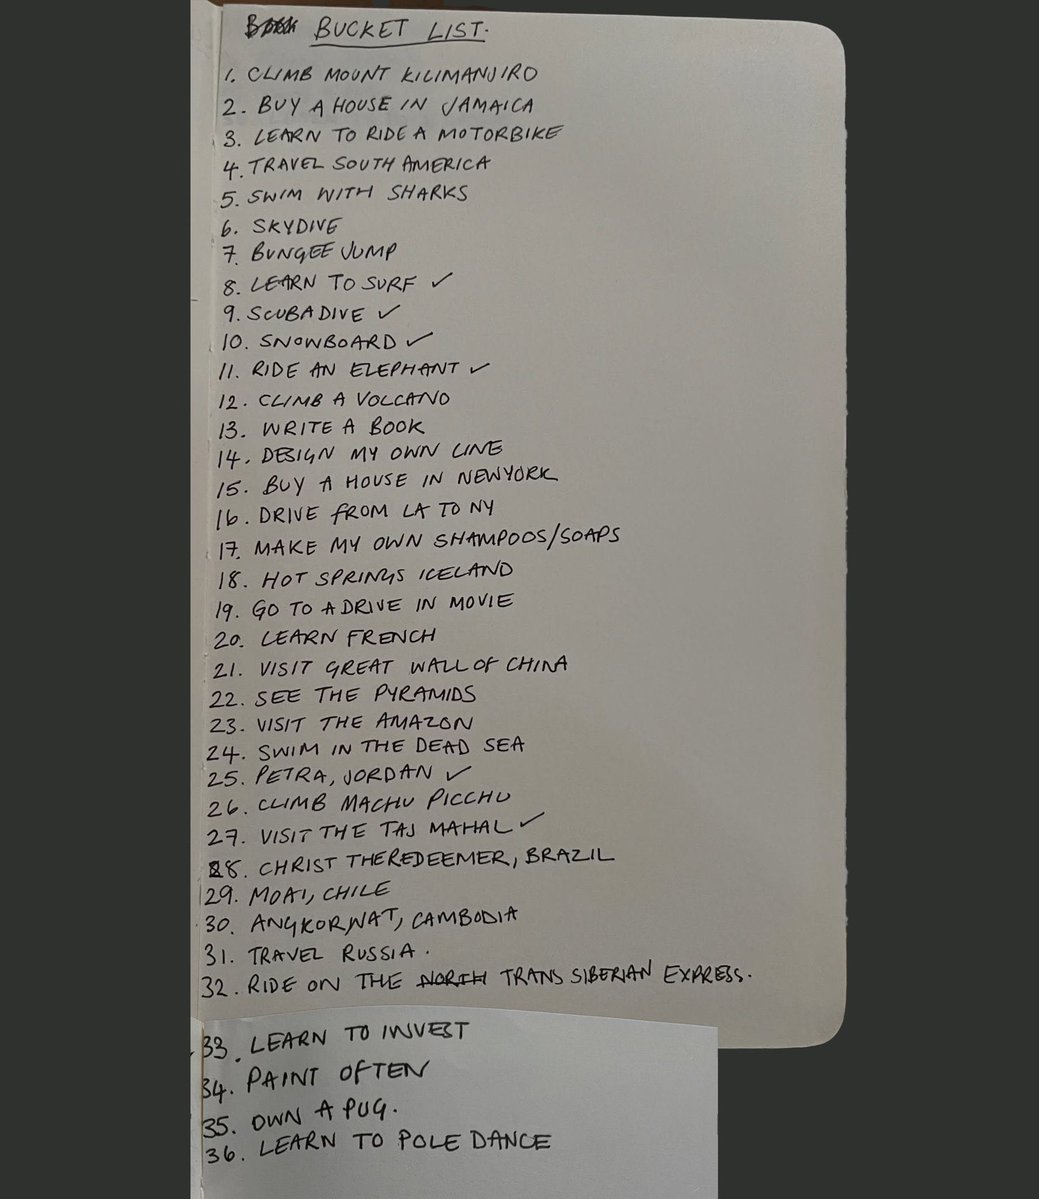 BUCKET LIST.
1. CLIMB MOUNT KILIMANJIRO
2. BUY A HOUSE IN JAMAICA
3. LEARN TO RIDE A MOTORBIKE
4. TRAVEL SOUTH AMERICA
5. SWIM WITH SHARKS
6. SKYDIVE
7. BUNGEE JUMP
8. LEARN TO SURF ✓
9. SCUBADIVE ✓
10. SNOWBOARD ✓
11. RIDE AN ELEPHANT ✓
12. CLIMB A VOLCANO
13. WRITE A BOOK
14. DESIGN MY OWN LINE
15. BUY A HOUSE IN NEWYORK
16. DRIVE FROM LA TO NY
17. MAKE MY OWN SHAMPOOS/SOAPS
18. HOT SPRINGS ICELAND
19. GO TO A DRIVE IN MOVIE
20. LEARN FRENCH
21. VISIT GREAT WALL OF CHINA
22. SEE THE PYRAMIDS
23. VISIT THE AMAZON
24. SWIM IN THE DEAD SEA
25. PETRA, JORDAN ✓
26. CLIMB MACHU PICCHU
27. VISIT THE TAJ MAHAL ✓
28. CHRIST THE REDEEMER, BRAZIL
29. MOAI, CHILE
30. ANGKORWAT, CAMBODIA
31. TRAVEL RUSSIA.
32. RIDE ON THE NORTH TRANS SIBERIAN EXPRESS.
33. LEARN TO INVEST
34. PAINT OFTEN
35. OWN A PUG.
36. LEARN TO POLE DANCE